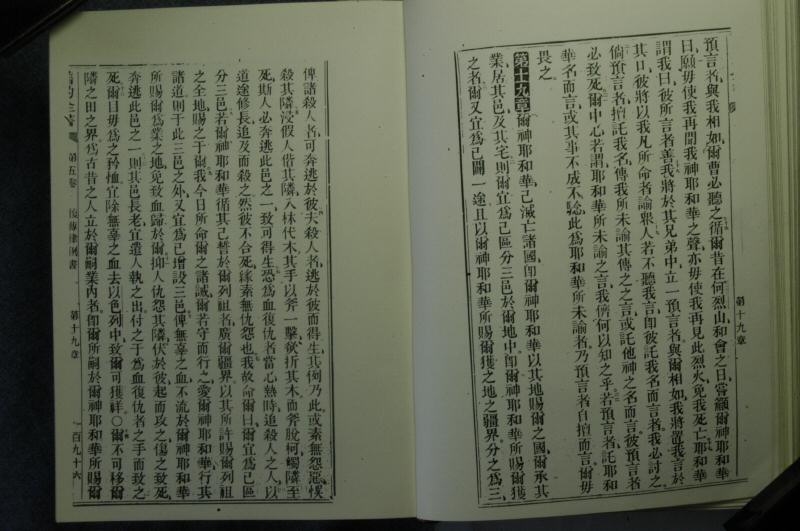 預言者與我相如爾曹必聽之循爾昔在何烈山和會之日嘗籲爾神耶和華
曰願毋使我再聞我神耶和華之聲亦毋使我再見此烈火免我死亡耶和華
謂我曰彼所言者善我將於其兄弟中立一預言者與爾相如我將置我言於
其口彼將以我凡所命者諭衆人若不聽我言卽彼託我名而言者我必討之
倘預言者擅託我名傳我所未諭其傳之之言或託他神之名而言彼預言者
必致死爾中心若謂耶和華所未諭之言我儕何以知之乎若預言者託耶和
華名而言或其事不成不騐此爲耶和華所未諭者乃預言者自擅而言爾毋
畏之
第十九章爾神耶和華已滅亡諸國卽爾神耶和華以其地賜爾之國爾承其
業居其邑及其宅則爾宜爲己區分三邑於爾地中卽爾神耶和華所賜爾獲
之者爾又宜爲己闢一途且以爾神耶和華所賜爾獲之地之疆界分之爲三
第十九章
俾諸殺人者可奔逃於彼夫殺人者逃於彼而得生其例乃此或素無怨惡悞
殺其隣浸假人偕其隣入林伐木其手以斧一擊欲折其木而斧脫柯蠋隣至
死斯人必奔逃此邑之一致可得生恐爲血復仇者當心熱時追殺人之人以
道途修長追及而殺之然彼不合死緣素無仇怨也我故命爾曰爾宜爲己區
分三邑若爾神耶和華循其己誓於爾列祖者廣爾疆界以其所許賜爾列祖
之全地賜之于爾我今日所命爾之諸誡爾若守而行之愛爾神耶和華行其
諸道則于此三邑之外又宜爲己增設三邑俾無辜之血不流於爾神耶和華
所賜爾爲業之地免致血歸於爾抑人仇怨其隣伏於彼起而攻之傷之致死
奔逃此邑之一則其邑長老宜遣人執之出付之于爲血復仇者之手而致之
死爾目毋爲之矜恤宜除無辜之血去以色列中致爾可獲祥〇爾不可移爾
隣之田之界爲古昔之人立於爾嗣業內者卽爾所嗣於爾神耶和華所賜爾
舊約全書
第五卷
復傳律例書
第十九章
一百九十六